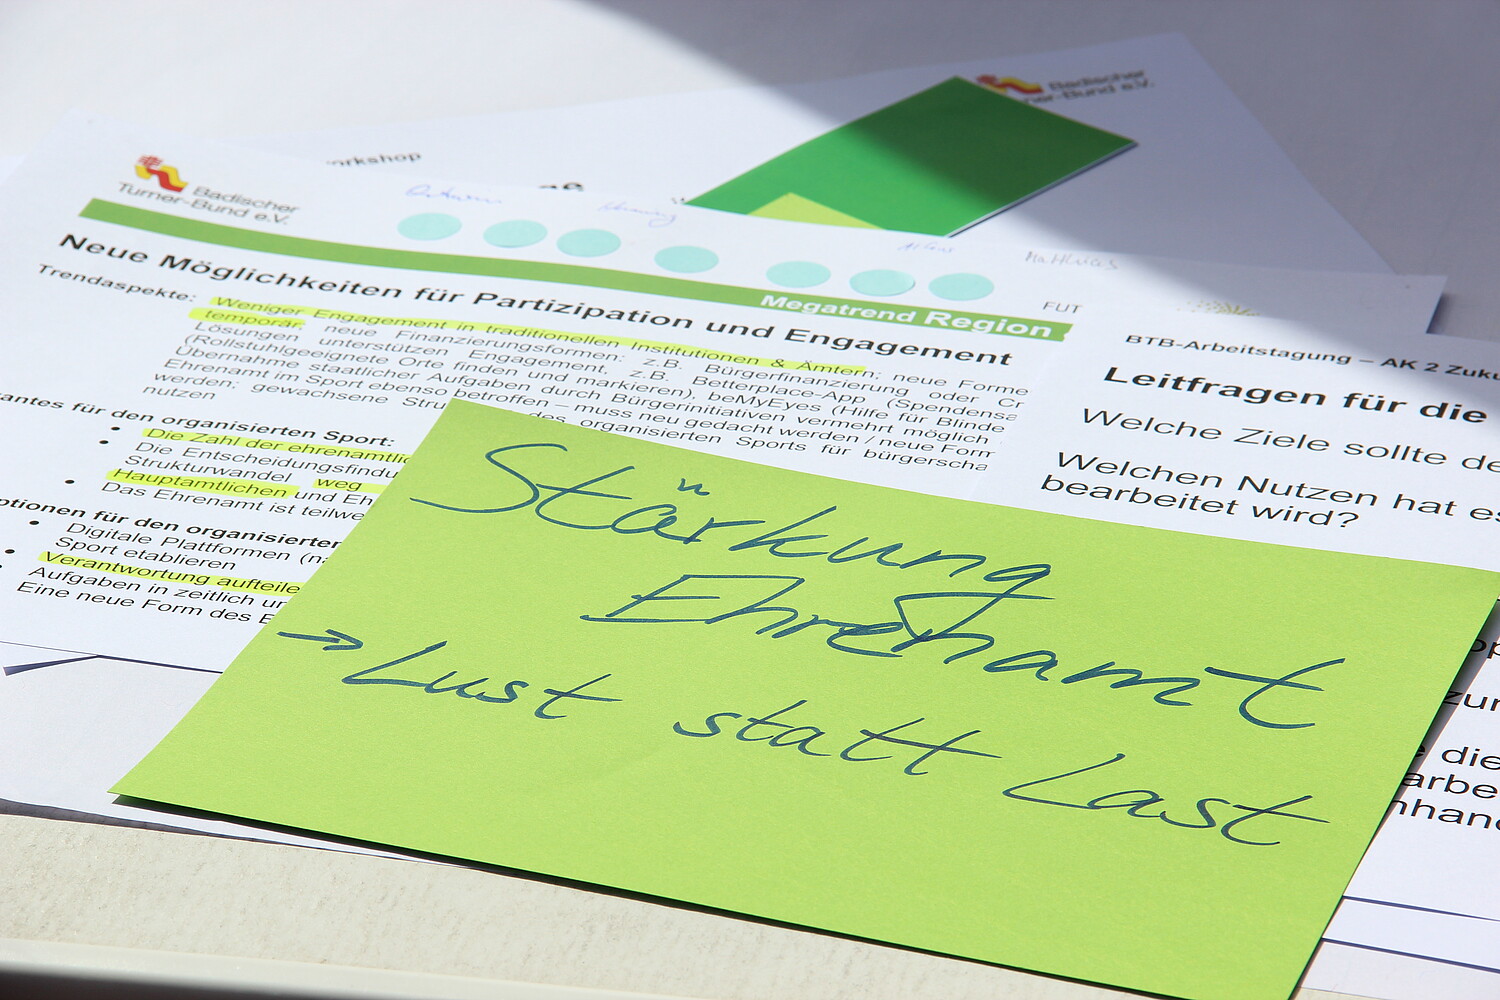 Badischer
Turner-Bund e.V.
orkshop
Badischer
Turner-Bund e.V.
Matthias
Megatrend Region
FUT
Neue Möglichkeiten für Partizipation und Engagement
Trendaspekte: Weniger Engagement in traditionellen Institutionen & Ämtern; neue Forme
temporär; neue Finanzierungsformen: z.B. Bürgerfinanzierung oder Cr
Lösungen unterstützen Engagement, z.B. Betterplace-App (Spendensa
(Rollstuhlgeeignete Orte finden und markieren), beMyEyes (Hilfe für Blinde
Übernahme staatlicher Aufgaben durch Bürgerinitiativen vermehrt möglich
Ehrenamt im Sport ebenso betroffen – muss neu gedacht werden / neue Form
werden; gewachsene Stru des organisierten Sports für bürgerscha
nutzen
antes für den organisierten Sport:
• Die Zahl der ehrenamtlic
• Die Entscheidungsfindu
Strukturwandel weg
Hauptamtlichen und Eh
• Das Ehrenamt ist teilwe
ptionen für den organisierter
• Digitale Plattformen (na
Sport etablieren
• Verantwortung aufteile
• Aufgaben in zeitlich un
Eine neue Form des E
BTB-Arbeitstagung – AK 2 Zuku
Leitfragen für die
Welche Ziele sollte de
Welchen Nutzen hat es
bearbeitet wird?
zur
die
arbe
nhand
Stärkung
Ehrenamt
→ Lust statt Last